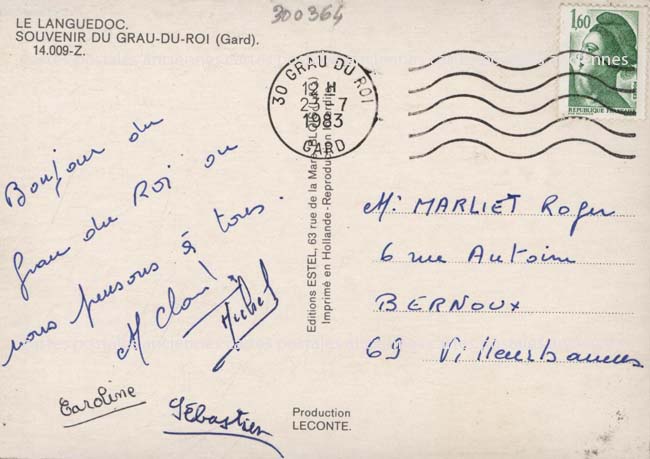 300364
LE LANGUEDOC.
SOUVENIR DU GRAU-DU-ROI (Gard).
14.009-Z.
1,60
REPUBLIQUE FRANÇAISE
30 GRAU DU ROI
12 H
23-7
1983
GARD
Bonjour du
Grau du Roi ou
nous pensons à tous.
M Claud
Michel
Caroline
Sébastien
Editions ESTEL, 63 rue de la Mare,
Imprimé en Hollande-Reproduction
Mr MARLIET Roger
6 rue Antoine
BERNOUX
69 Villeurbannes
Production
LECONTE.